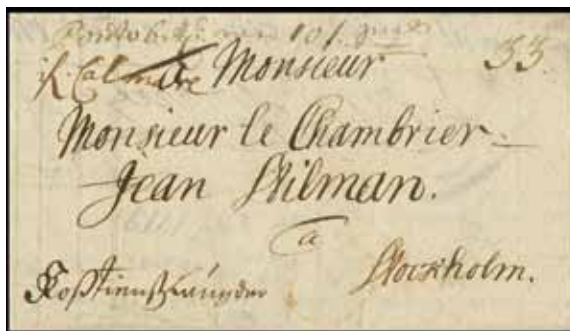 101. 33.
Calmare
a Monsieur
Monsieur le Chambrier
Jean Stilman.
a
Stockholm.